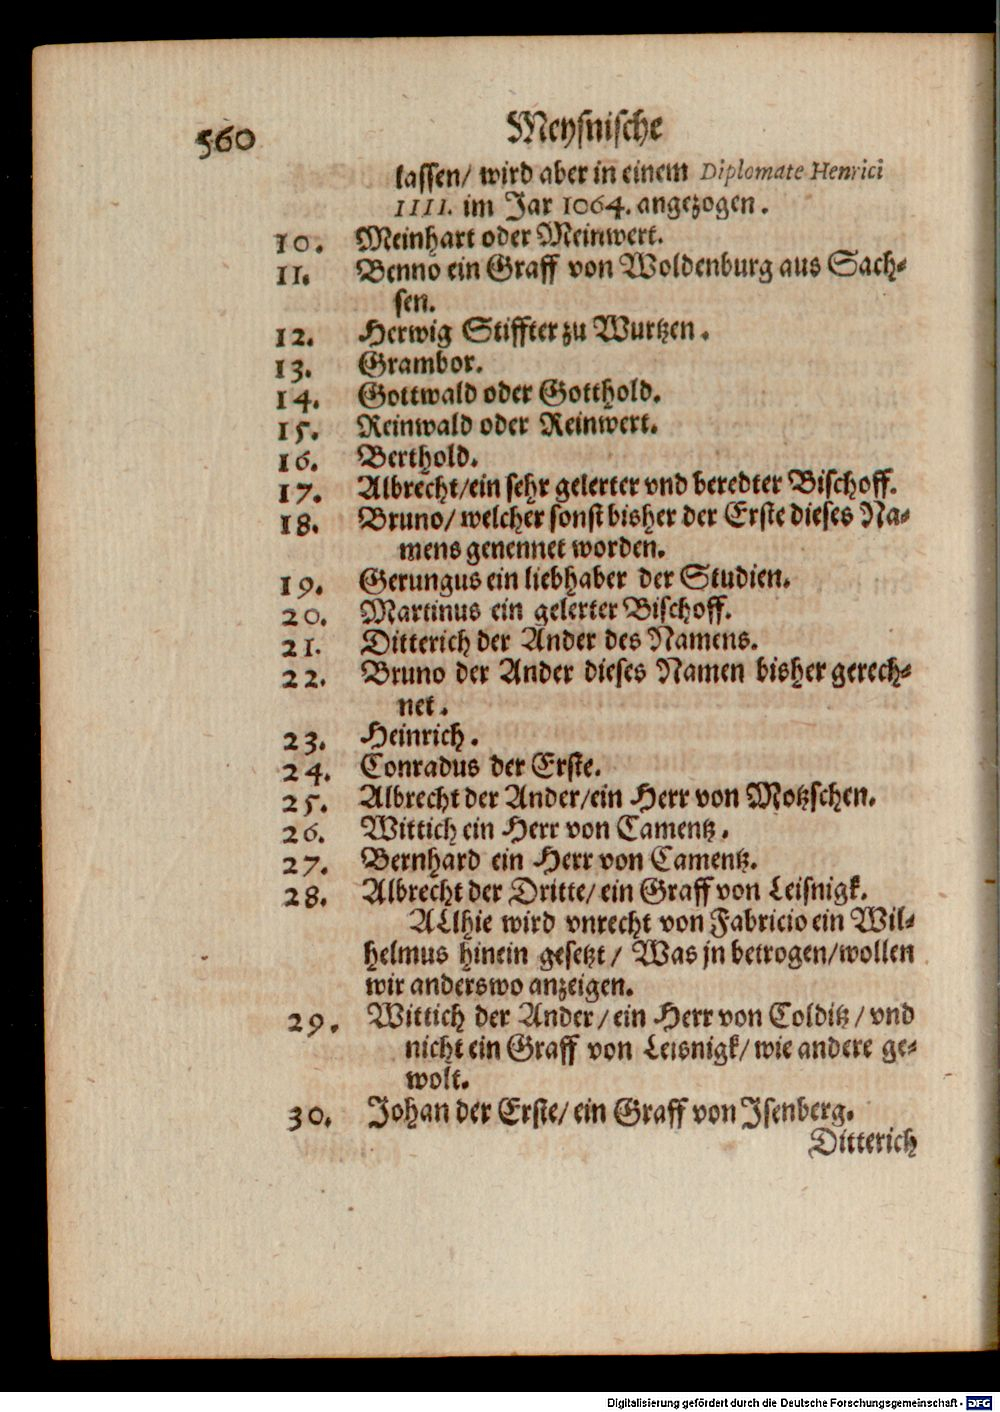 560 Meysnische
lassen/ wird aber in einem Diplomate Henrici
IIII. im Jar 1064. angezogen.
10. Meinhart oder Meinwert.
11. Benno ein Graff von Woldenburg aus Sach-
sen.
12. Herwig Stiffter zu Wurtzen.
13. Grambor.
14. Gottwald oder Gotthold.
15. Reinwald oder Reinwert.
16. Berthold.
17. Albrecht/ein sehr gelerter vnd beredter Bischoff.
18. Bruno/ welcher sonst bisher der Erste dieses Na-
mens genennet worden.
19. Gerungus ein liebhaber der Studien.
20. Martinus ein gelerter Bischoff.
21. Ditterich der Ander des Namens.
22. Bruno der Ander dieses Namen bisher gerech-
net.
23. Heinrich.
24. Conradus der Erste.
25. Albrecht der Ander/ein Herr von Motzschen.
26. Wittich ein Herr von Camentz.
27. Bernhard ein Herr von Camentz.
28. Albrecht der Dritte/ ein Graff von Leisnigk.
ALlhie wird vnrecht von Fabricio ein Wil-
helmus hinein gesetzt / Was jn betrogen/wollen
wir anderswo anzeigen.
29. Wittich der Ander / ein Herr von Colditz / vnd
nicht ein Graff von Leisnigk/ wie andere ge-
wolt.
30. Johan der Erste/ ein Graff von Isenberg.
Ditterich
Digitalisierung gefördert durch die Deutsche Forschungsgemeinschaft - DFG